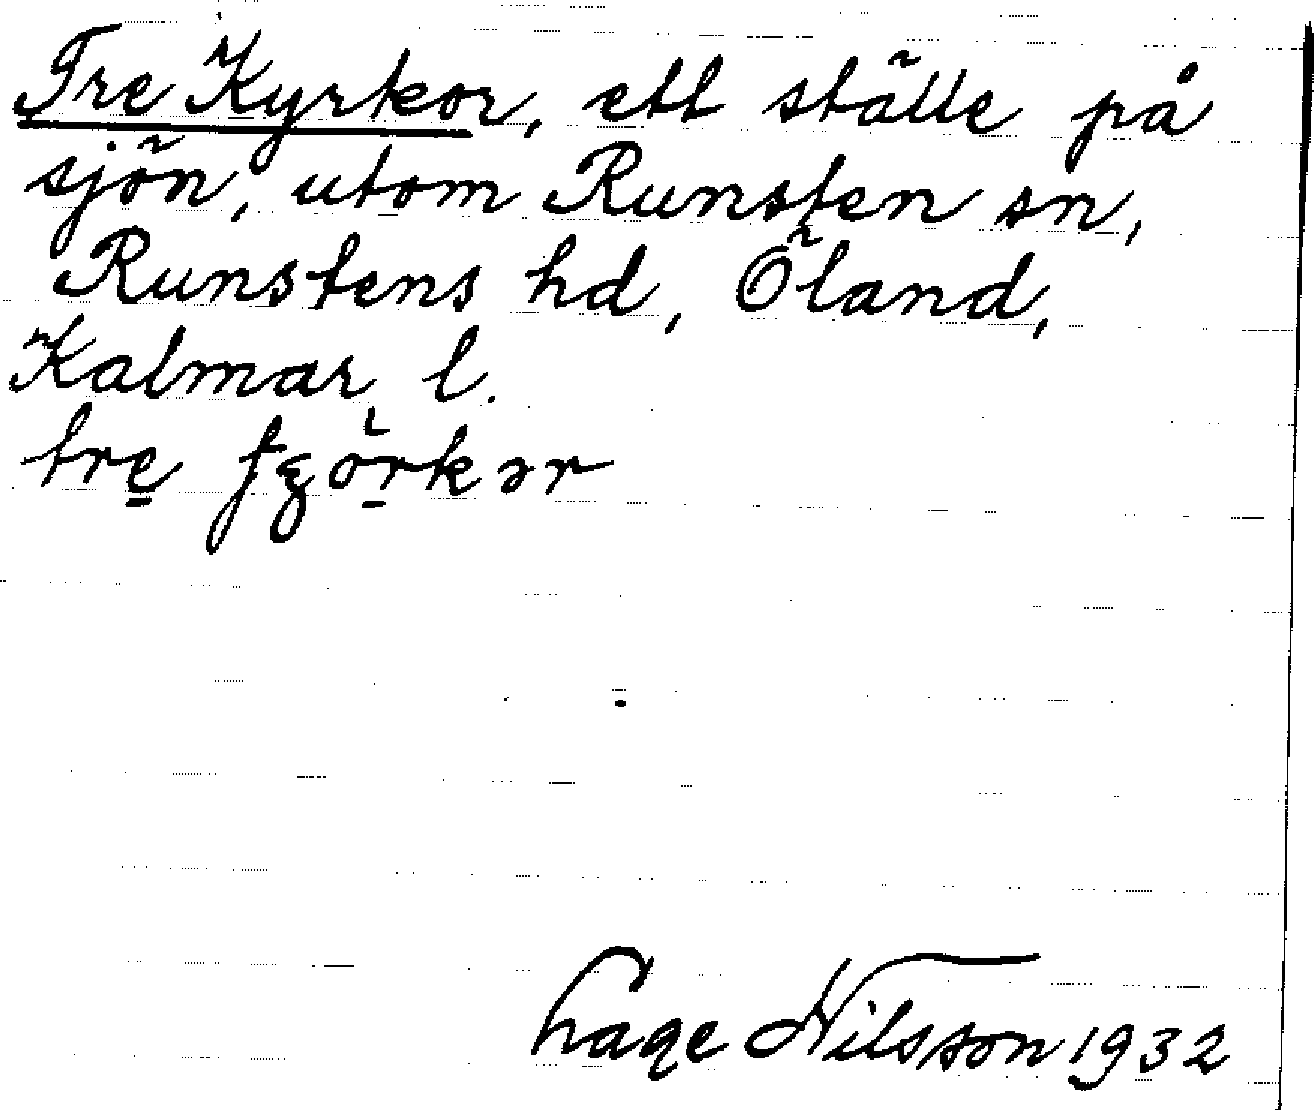 Tre Kyrkor, ett ställe på
sjön, utom Runsten sn,
Runstens hd, Öland,
Kalmar l.
tre
Nilsson 1932